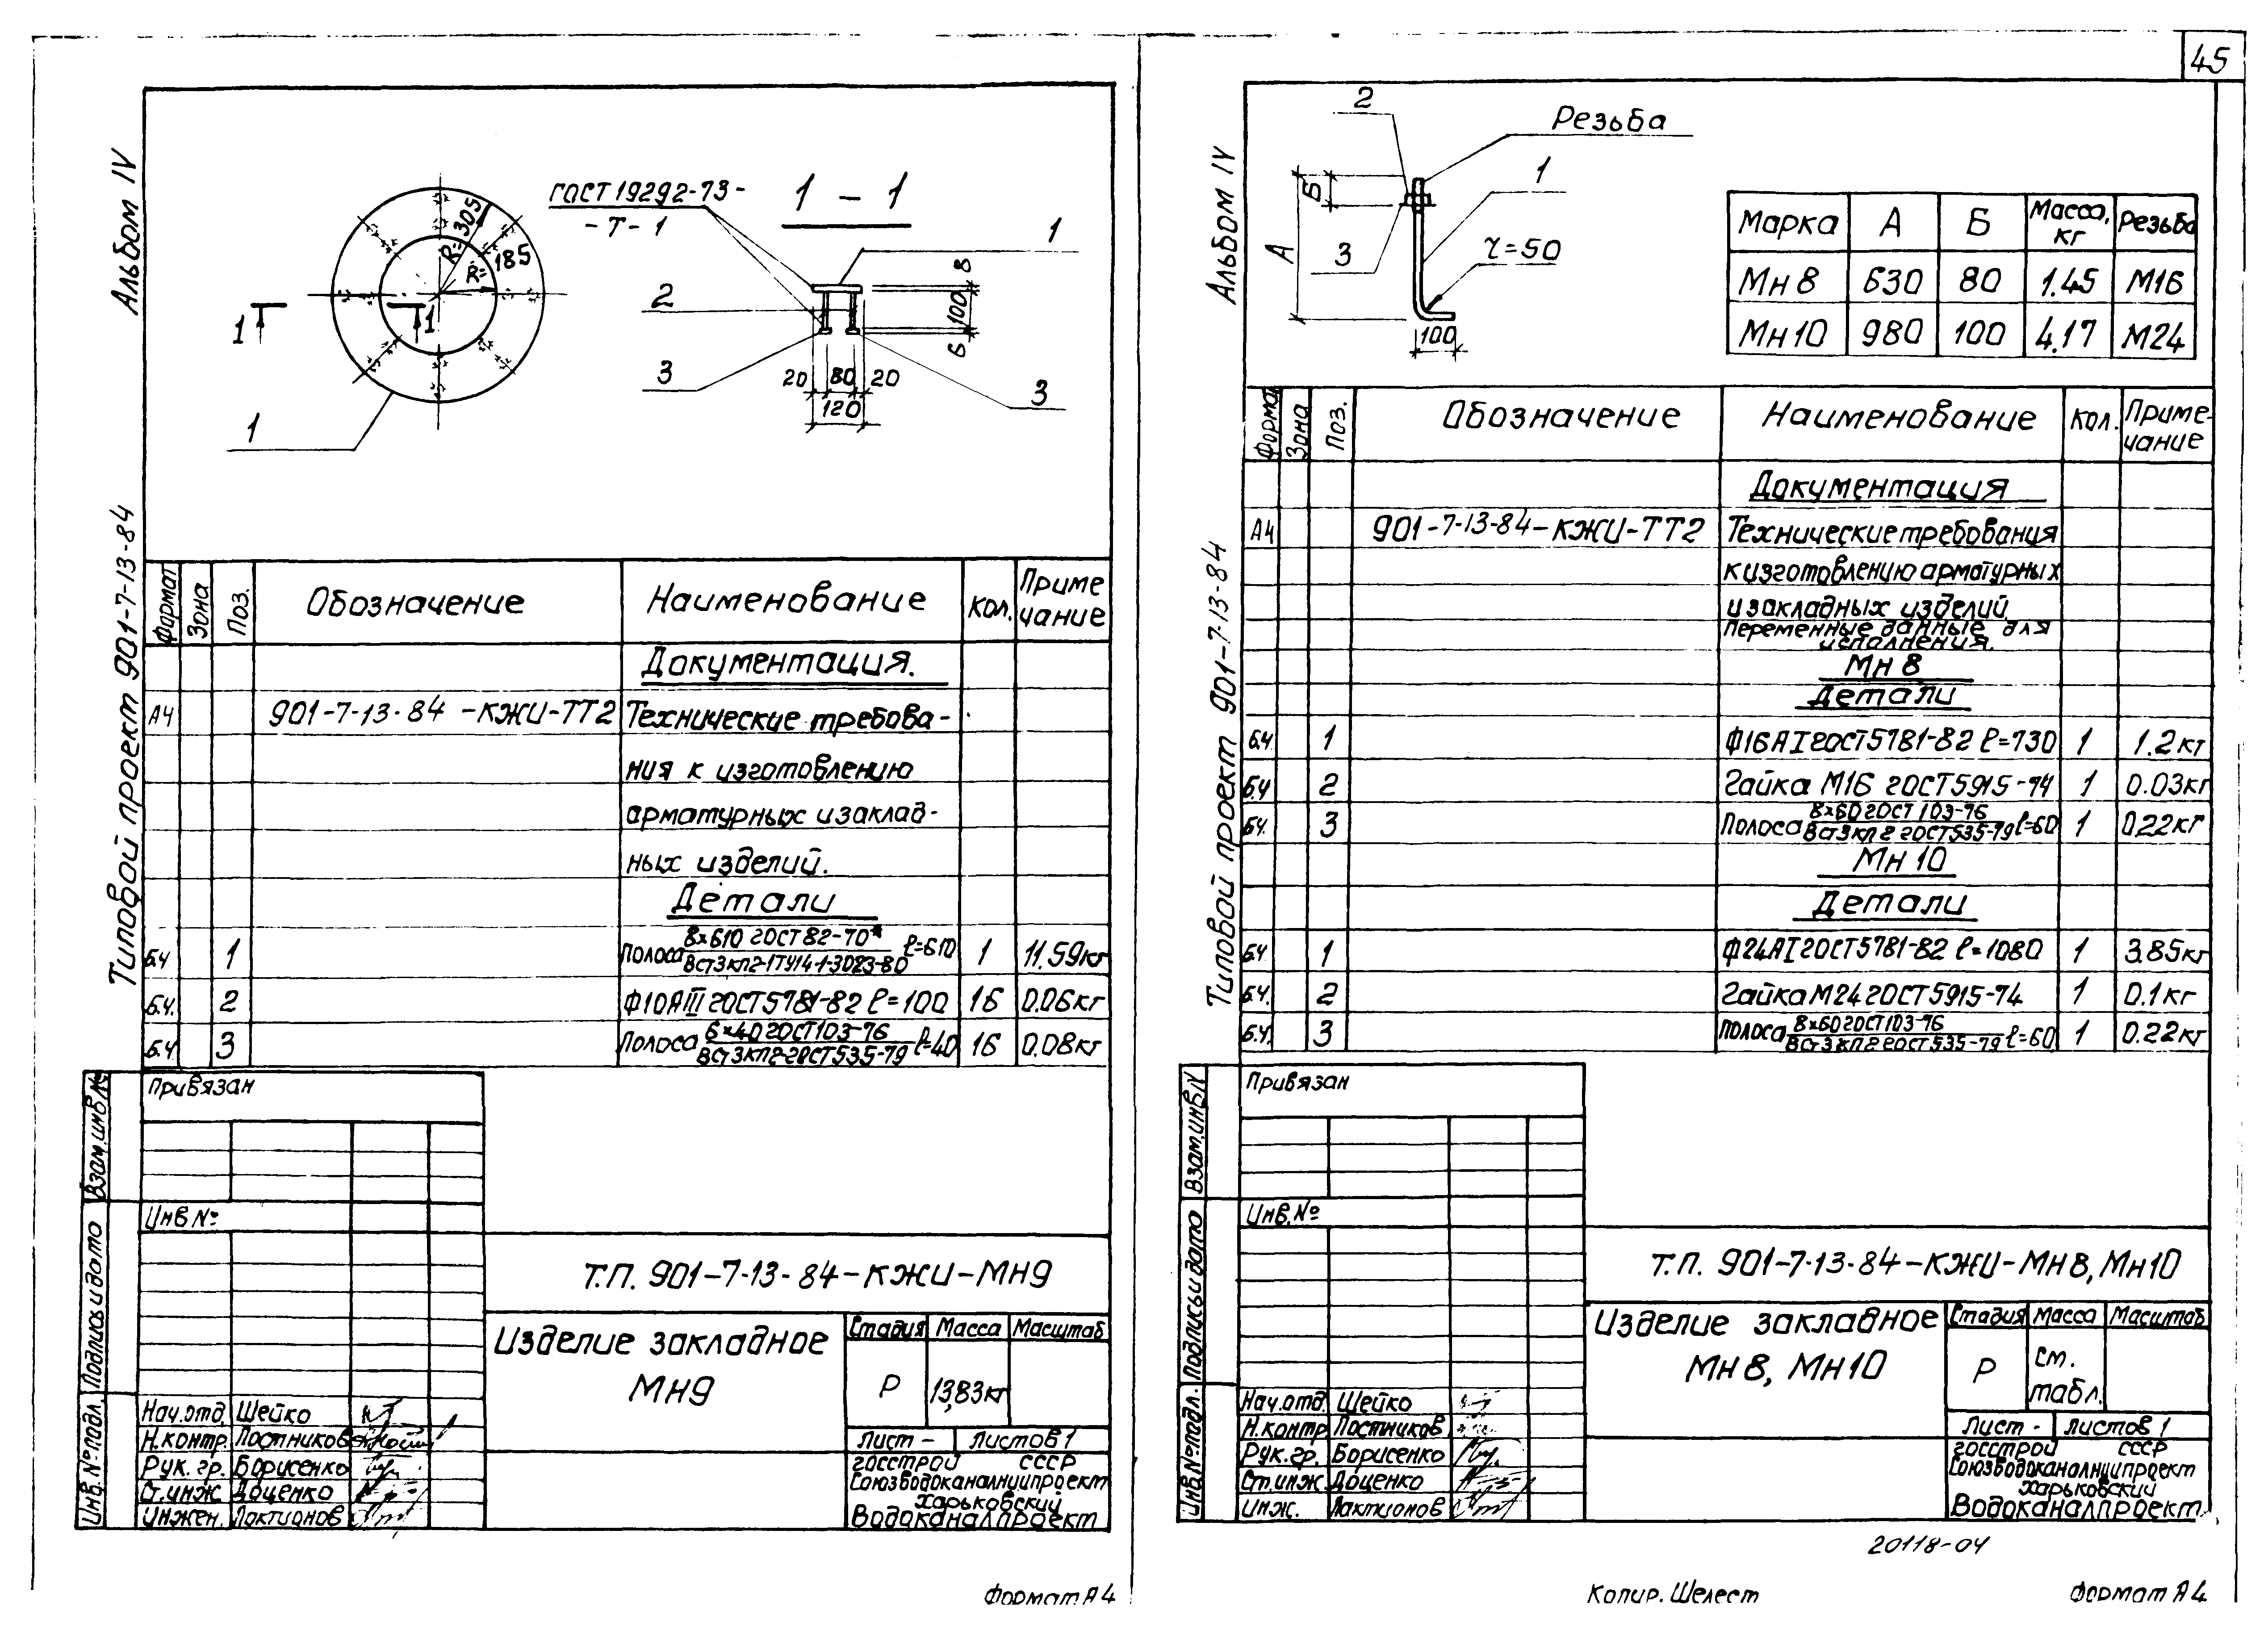 45
Альбом IV
Типовой проект 901-7-13-84
ГОСТ 19292-73-
-Т-1
1 - 1
R=305
R=185
1
1
1
1
2
3
3
8
100
6
20 80 20
120
Формат
Зона
Поз.
Обозначение
Наименование
Кол.
Приме
чание
Документация.
А4 901-7-13-84-КЖИ-ТТ2 Технические требова-
ния к изготовлению
арматурных и заклад-
ных изделий.
Детали
Б.ч 1 Полоса 8х610 ГОСТ 82-70* / ВСт3кп2-1ТУ14-1-3023-80 ℓ=610 1 11.59кг
Б.ч. 2 Ф10АIII ГОСТ 5781-82 ℓ=100 16 0.06кг
Б.ч 3 Полоса 6х40 ГОСТ 103-76 / ВСт3кп2 ГОСТ 535-79 ℓ=40 16 0.08кг
Привязан
Инв №
Взам.инв.№
Подпись и дата
Инв.№ подл.
Т.П. 901-7-13-84-КЖИ-МН9
Изделие закладное
МН9
Стадия Масса Масштаб
Р 13,83кг
Лист - Листов 1
Госстрой СССР
Союзводоканалниипроект
Харьковский
Водоканалпроект
Нач.отд. Шейко
Н.контр. Постников
Рук. гр. Борисенко
Ст.инж Доценко
Инжен. Лактионов
Формат А4
Альбом IV
Типовой проект 901-7-13-84
2
Резьба
1
Б
А
3
r=50
100
Марка А Б Масса, кг Резьба
Мн 8 630 80 1.45 М16
Мн 10 980 100 4.17 М24
Формат
Зона
Поз.
Обозначение
Наименование
Кол.
Приме-
чание
Документация
А4 901-7-13-84-КЖИ-ТТ2 Технические требования
к изготовлению арматурных
и закладных изделий
Переменные данные для
исполнения.
Мн 8
Детали
Б.ч 1 Ф16АI ГОСТ 5781-82 ℓ=730 1 1.2кг
Б.ч 2 Гайка М16 ГОСТ 5915-74 1 0.03кг
Б.ч. 3 Полоса 8х60 ГОСТ 103-76 / ВСт3кп2 ГОСТ 535-79 ℓ=60 1 0.22кг
Мн 10
Детали
Б.ч 1 Ф24АI ГОСТ 5781-82 ℓ=1080 1 3.85кг
Б.ч. 2 Гайка М24 ГОСТ 5915-74 1 0.1кг
Б.ч. 3 Полоса 8х60 ГОСТ 103-76 / ВСт3кп2 ГОСТ 535-79 ℓ=60 1 0.22кг
Привязан
Инв.№
Взам.инв.№
Подпись и дата
Инв.№ подл.
Т.П. 901-7-13-84-КЖИ-МН8, Мн10
Изделие закладное
Мн 8, Мн10
Стадия Масса Масштаб
Р см. табл.
Лист - Листов 1
Госстрой СССР
Союзводоканалниипроект
Харьковский
Водоканалпроект
Нач.отд. Шейко
Н.контр Постников
Рук.гр. Борисенко
Ст.инж Доценко
Инж. Лактионов
20118-04
Копир. Шелест
Формат А4